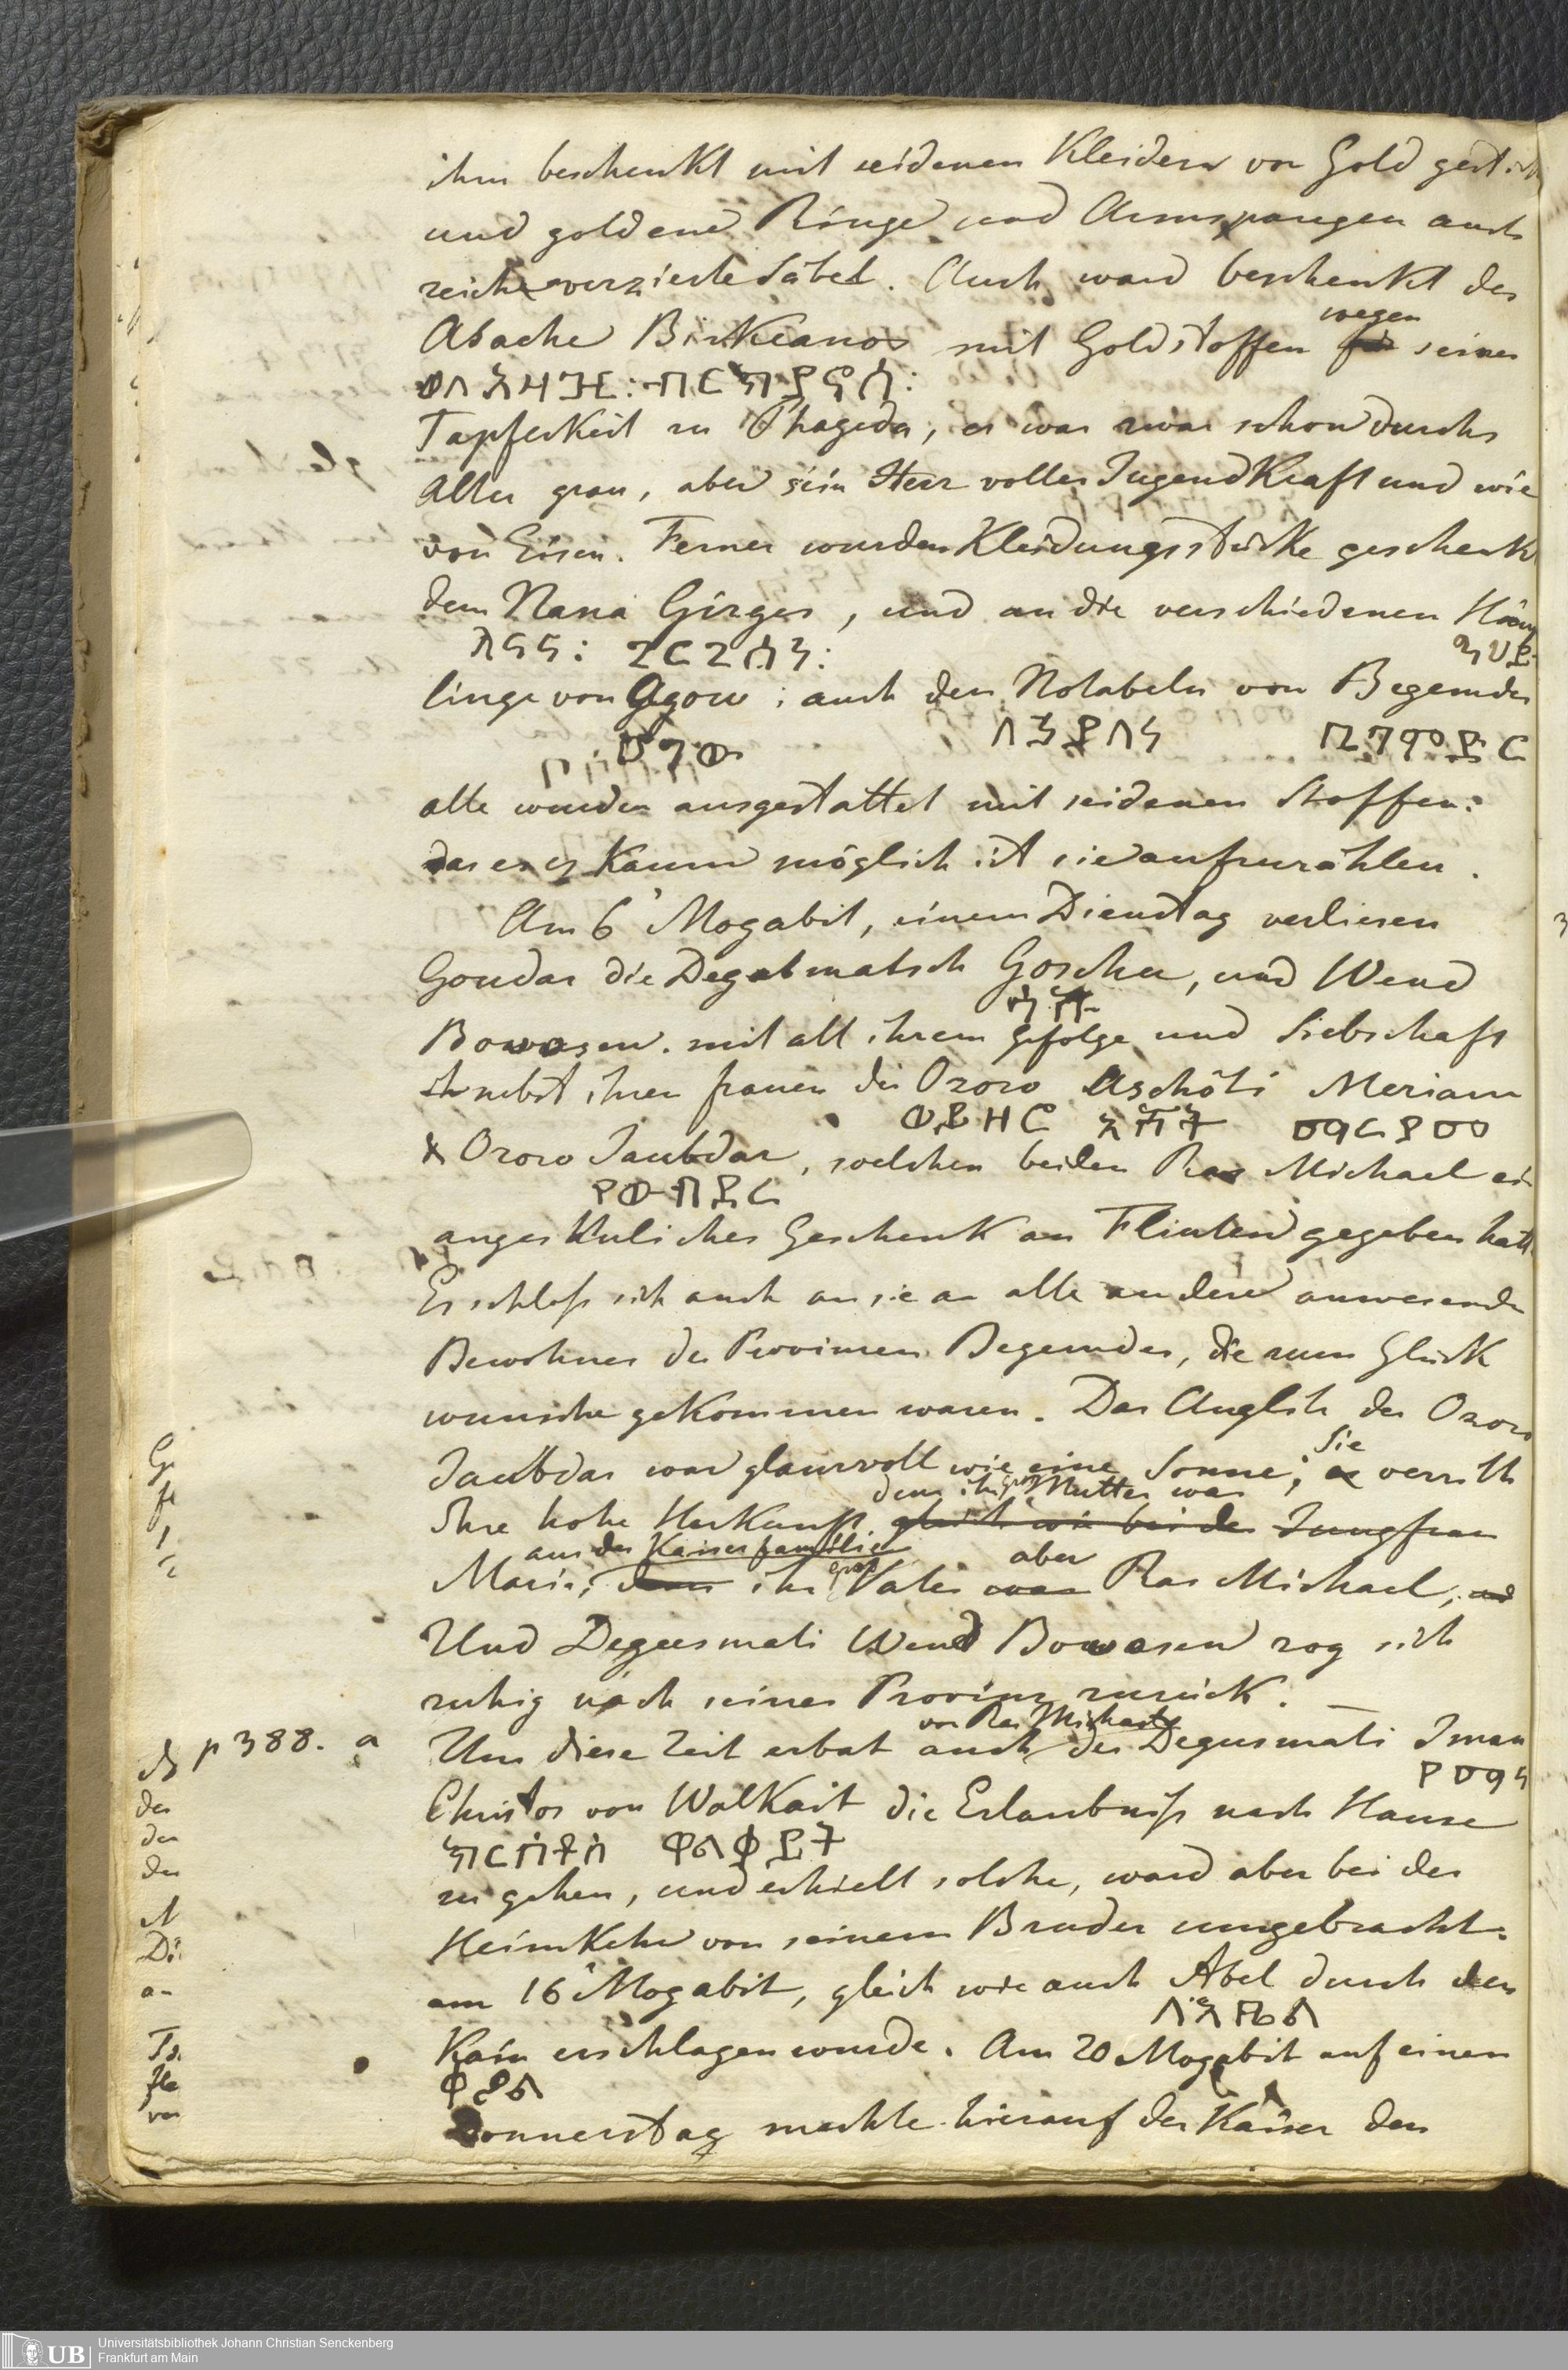 ihm beschenkt mit seidenen Kleidern von Gold
und goldene Ringe und Armspangen auch
reich verzierte Säbel. Auch ward beschenkt der
Abache Birkeanos mit Goldstoffen wegen für seiner
Tapferkeit zu Phageda, er war zwar schon durchs
Alter grau, aber sein Herz voller Jugendkraft und wie
von Eisen. Ferner wurden Kleidungsstücke geschenkt
dem Nana Girges, und an die verschiedenen
ለናና: ጊርጊስን:
linge von Agow; auch den Notabeln von Begemder
በጌምድር
alle wurden ausgestattet mit seidenen Stoffen:
das es kaum möglich ist sie aufzuzählen.
Am 6 Mogabit, einem Dienstag verliesen
Gondar die Degatmatsch Goschu, und Wend
Bowosen. mit all ihrem Gefolge und Liebschaft
nebst ihren frauen die Ozoro Aschöti Meriam
ማርያም
& Ozoro Jaubdar, welchen beiden Ras Michael ein
የውብዳር
Geschenk an Flinten gegeben hatt
Er schloß sich auch an sie an alle andere anwesende
Bewohner der Provinzen Begemder, die zum Glück
wunsche gekommen waren. Das Anglitz der Ozoro
Jaubdar war glanzvoll wie eine Sonne; Sie verrith
denn ihre Mutter war
Ihre hohe Herkunft gleich wie bei der Jungfrau
aus der Kaiserfamilie
Maria; denn ihr Groß Vater aber war Ras Michael; und
Und Degusmati Wend Bowasen zog sich
ruhig nach seiner Provinz zurück. —
von Ras Michael
p 388. a Um diese Zeit erbat auch der Degusmati Iman
የማን
Christos von Walkait die Erlaubniß nach Hause
ክርስቶስ ወልቃይት
zu gehen, und erhielt solche, ward aber bei der
Heimkehr von seinem Bruder umgebracht.
am 16 Mogabit, gleich wie auch Abel durch den
ለአቤል
Kain erschlagen wurde. Am 20 Mogabit auf einen
ቃየል
Donnerstag machte hierauf der Kaiser den
Universitätsbibliothek Johann Christian Senckenberg
UB Frankfurt am Main